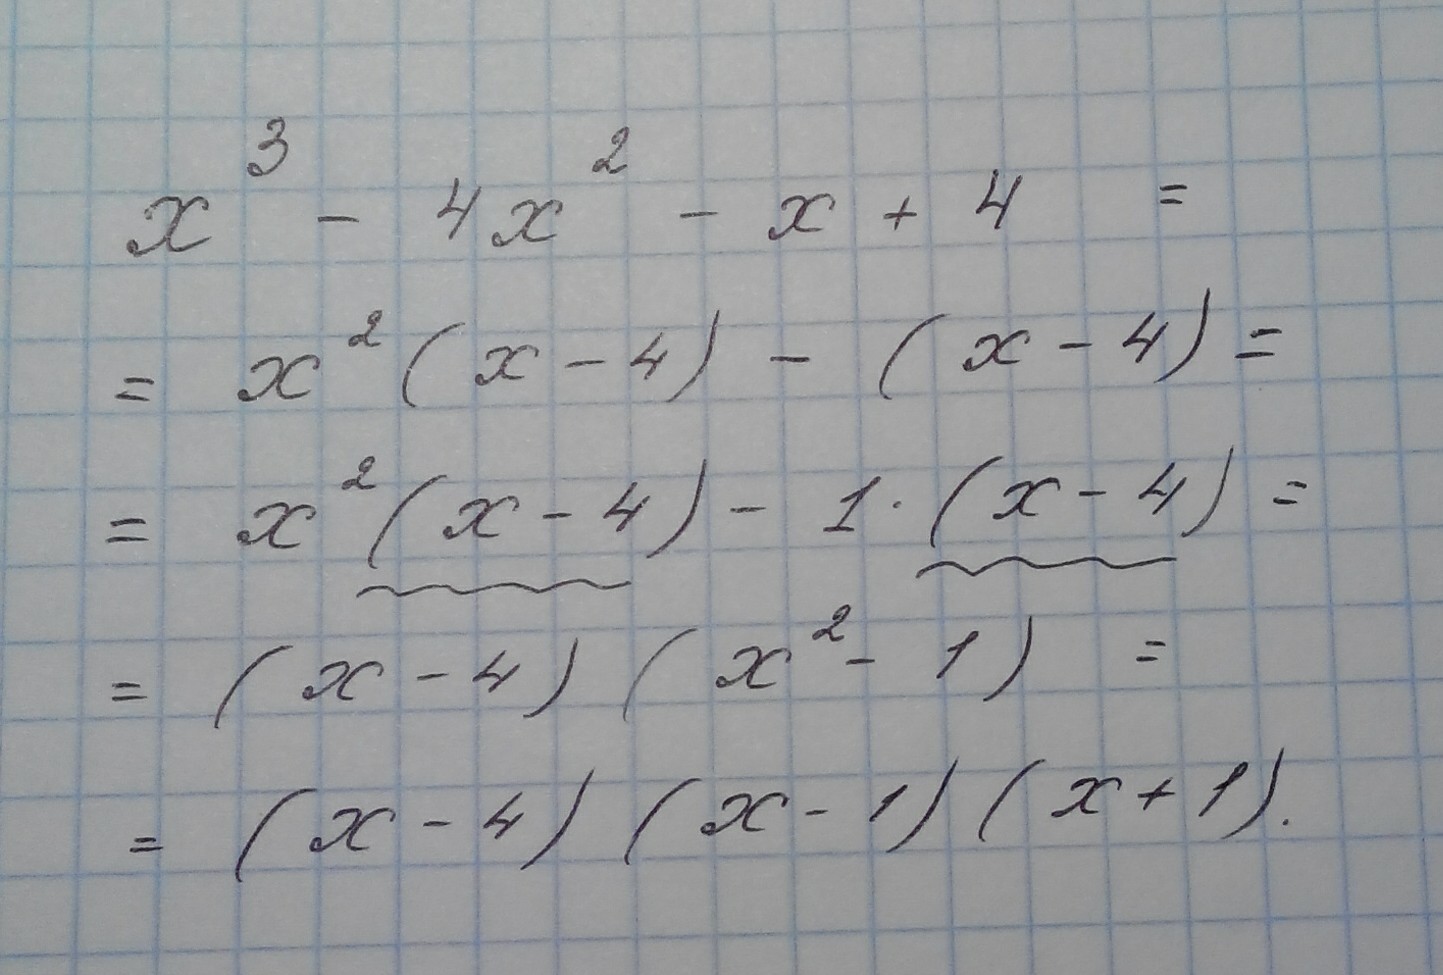 x³ - 4x² - x + 4 =
= x² (x - 4) - (x - 4) =
= x² (x - 4) - 1 · (x - 4) =
= (x - 4) (x² - 1) =
= (x - 4) (x - 1) (x + 1).